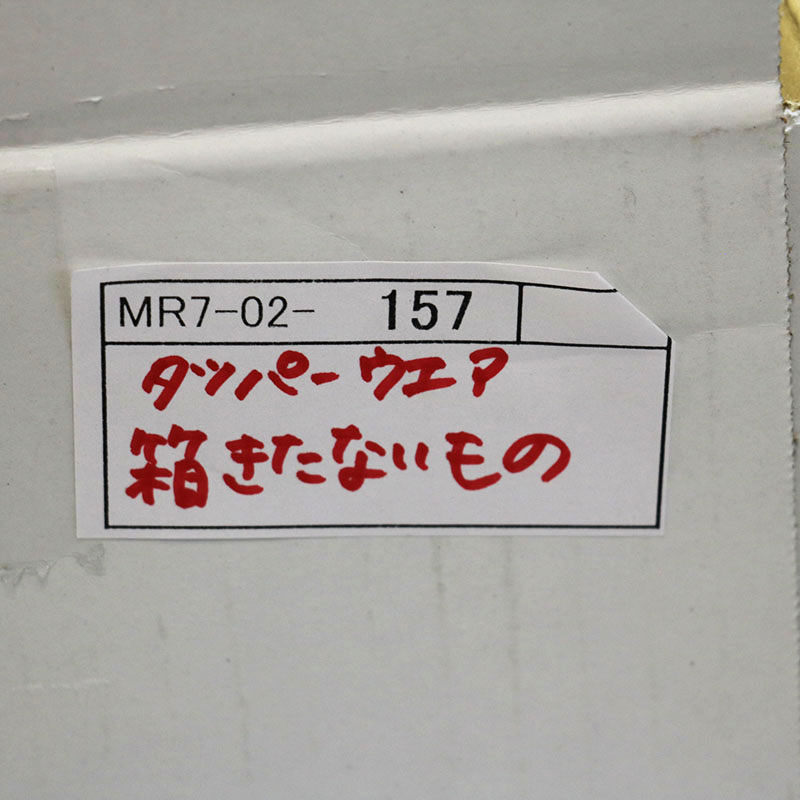 MR7-02- 157
タッパーウエア
箱きたないもの